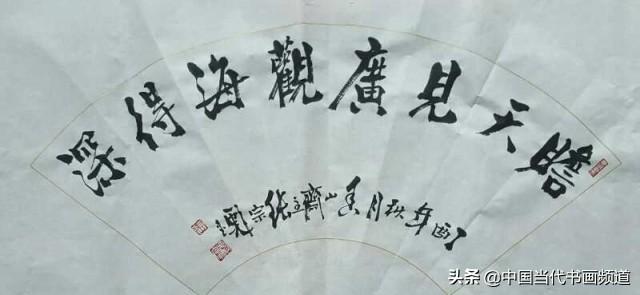 瞻天見廣觀海得深
丁酉年秋月山齋主张宗
头条 @中国当代书画频道